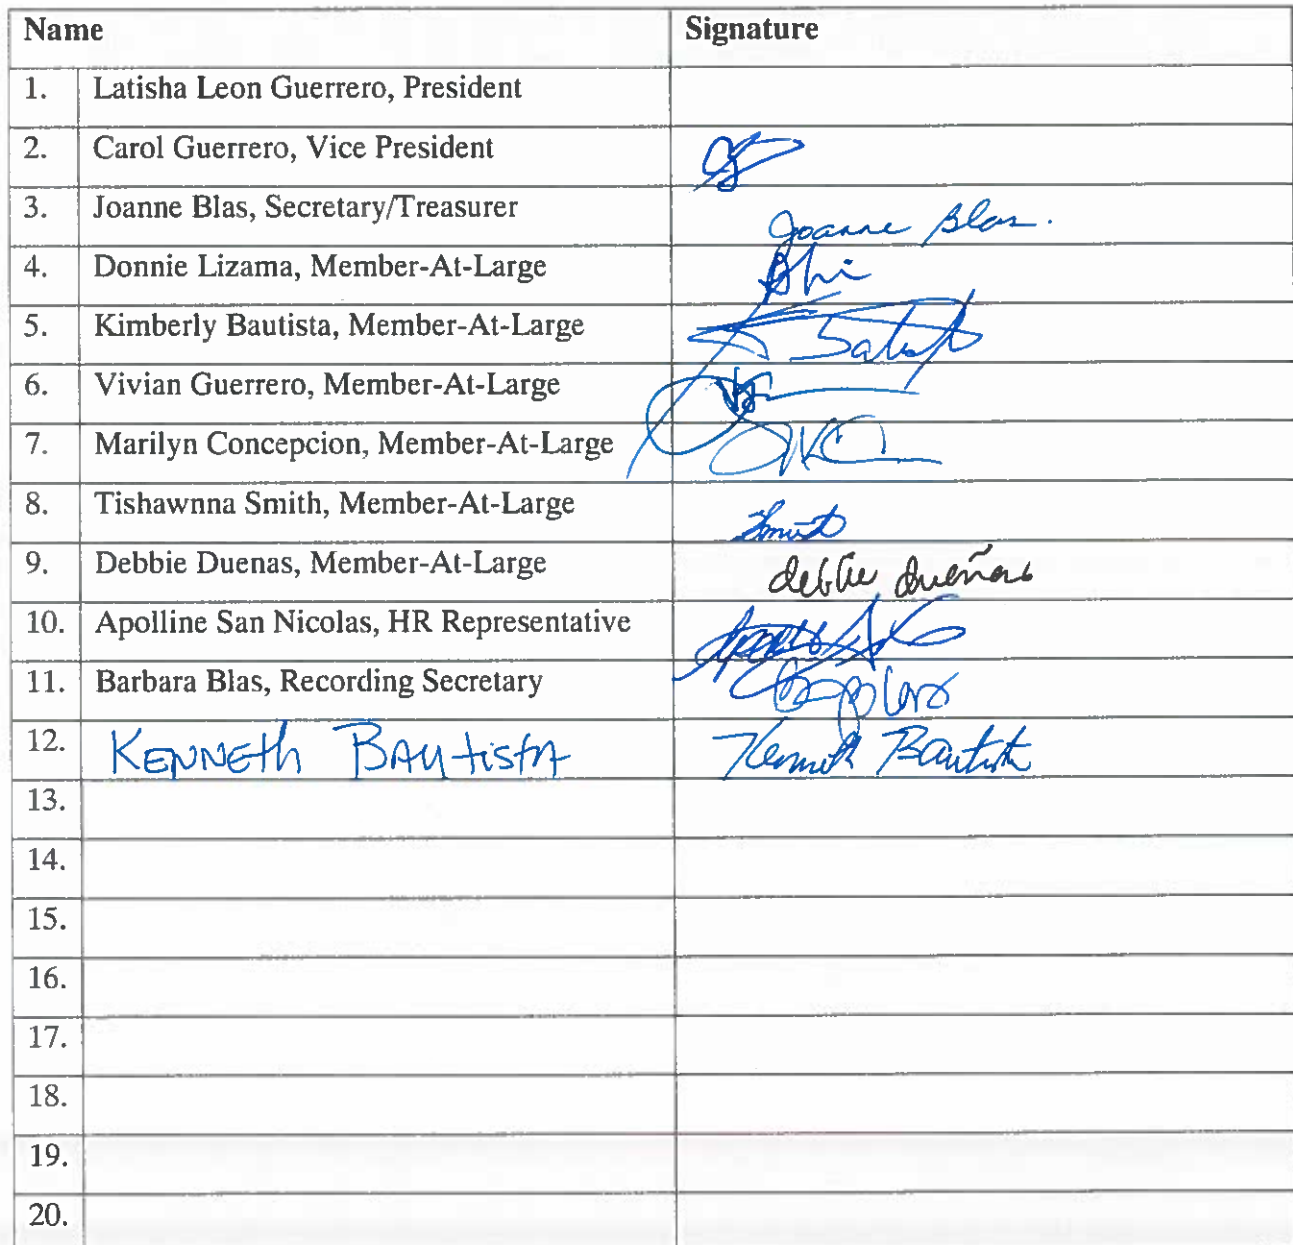 Name Signature
1. Latisha Leon Guerrero, President
2. Carol Guerrero, Vice President
3. Joanne Blas, Secretary/Treasurer Joanne Blas.
4. Donnie Lizama, Member-At-Large
5. Kimberly Bautista, Member-At-Large
6. Vivian Guerrero, Member-At-Large
7. Marilyn Concepcion, Member-At-Large
8. Tishawnna Smith, Member-At-Large
9. Debbie Duenas, Member-At-Large debbie dueñas
10. Apolline San Nicolas, HR Representative
11. Barbara Blas, Recording Secretary
12. KENNEth BAutistA Kenneth Bautista
13.
14.
15.
16.
17.
18.
19.
20.